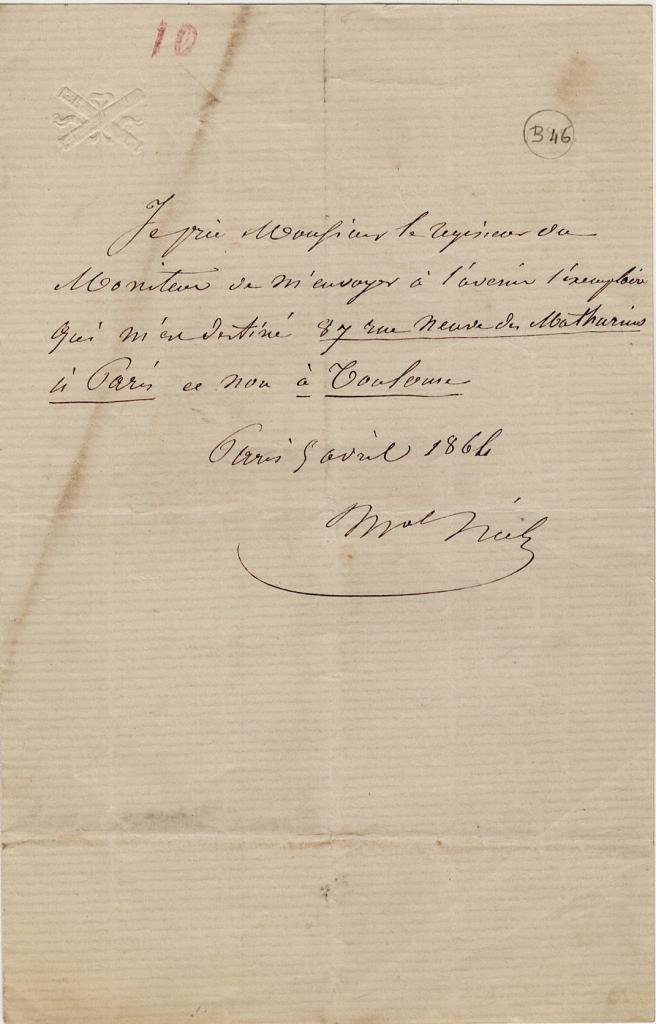 10
B 46
Je prie Monsieur le régisseur du
Moniteur de m'envoyer à l'avenir l'exemplaire
qui m'est destiné 87 rue Neuve des Mathurins
à Paris et non à Toulouse
Paris 5 avril 1864
Mal Niel